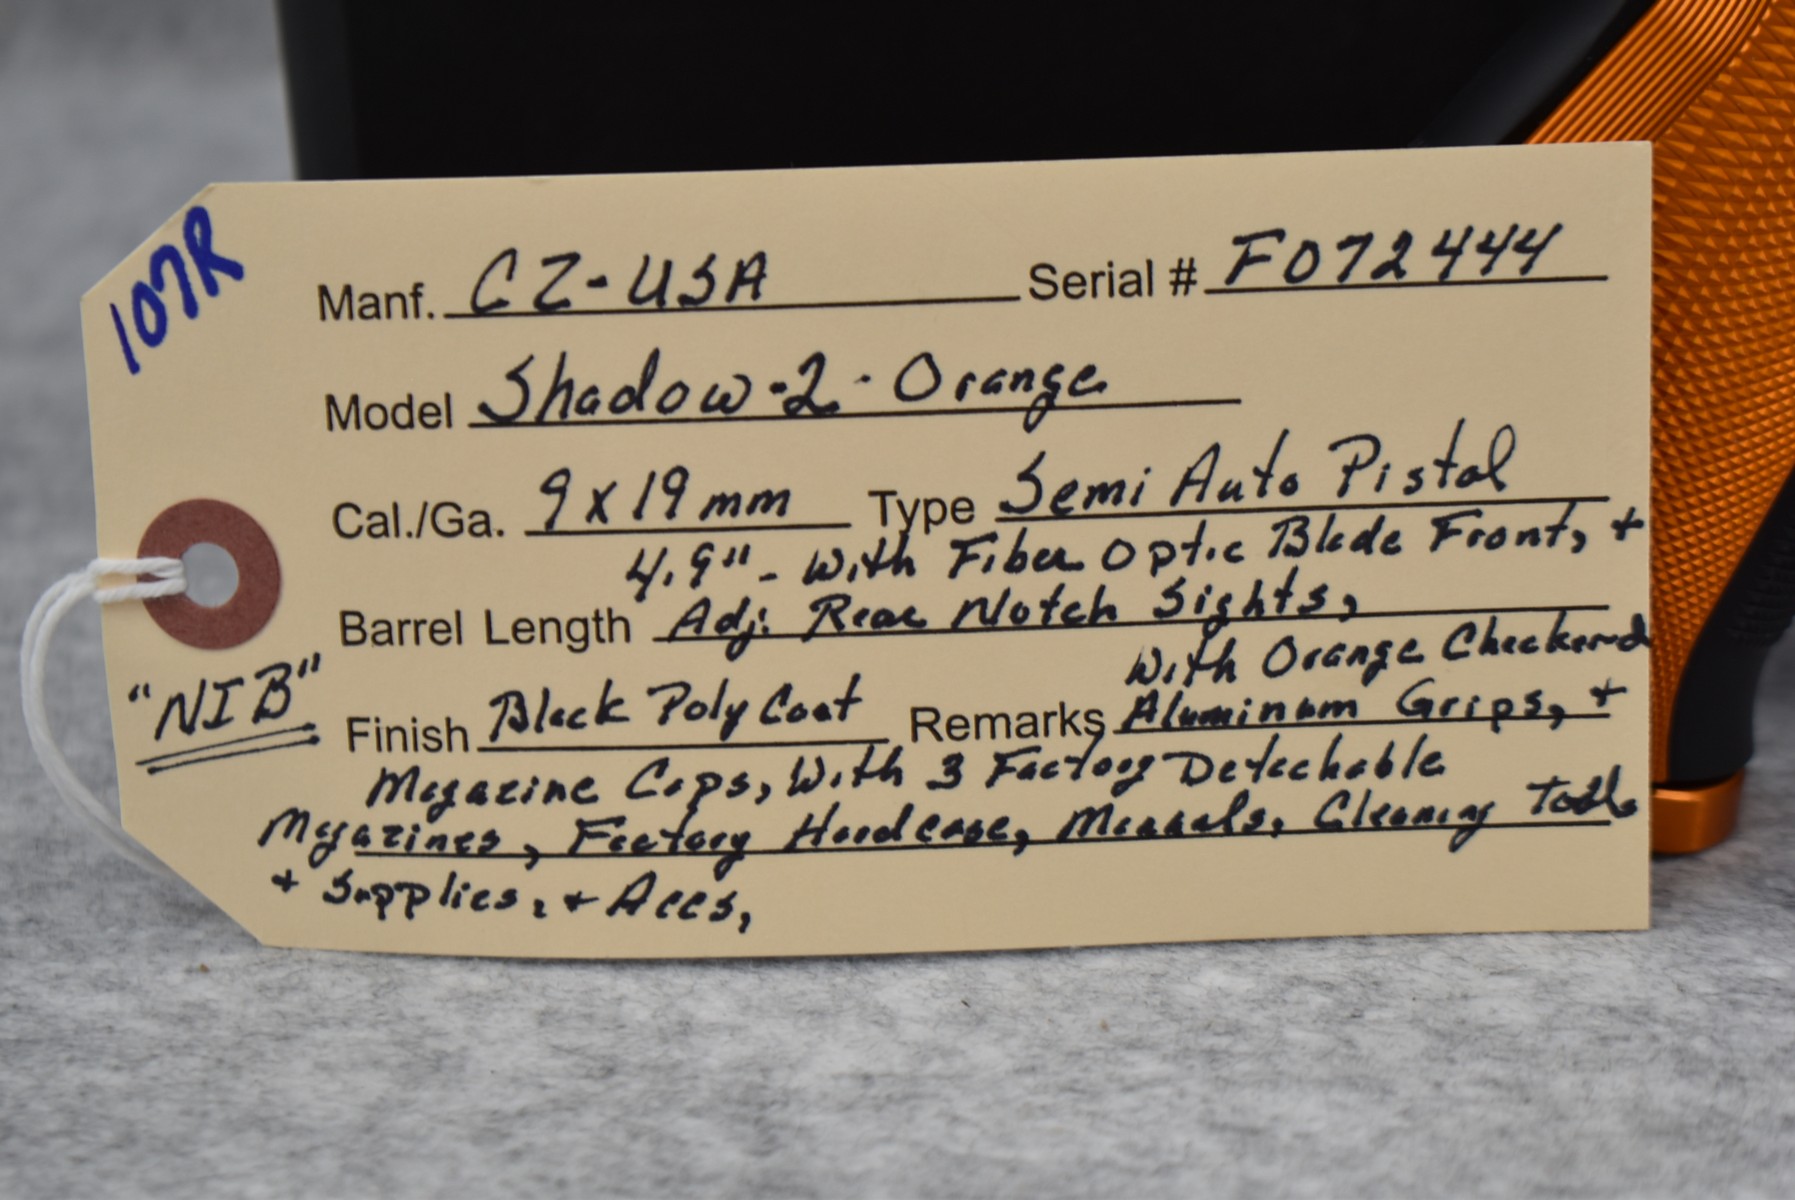 107R
Manf. CZ-USA Serial # F072444
Model Shadow-2-Orange
Cal./Ga. 9x19mm Type Semi Auto Pistol
4.9" - With Fiber Optic Blade Front, +
Barrel Length Adj. Rear Notch Sights,
"NIB"
With Orange Checkered
Finish Black Poly Coat Remarks Aluminum Grips, +
Magazine Caps, With 3 Factory Detachable
Magazines, Factory Hardcase, Manuals, Cleaning Tools
+ Supplies, + Aces,